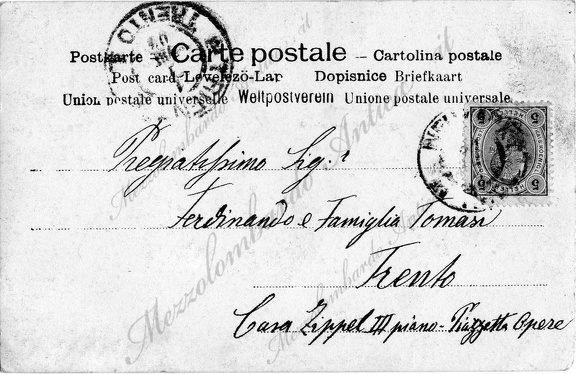 Postkarte — Carte postale — Cartolina postale
Post card Levelező-Lap Dopisnice Briefkaart
Union postale universelle Weltpostverein Unione postale universale
TRENTO
5 5
5 5
Pregiatissimo Sig.r
Ferdinando e Famiglia Tomasi
Trento
Casa Zippel III piano - Piazzetta Opere
Mezzolombardo Antica
Mezzolombardo